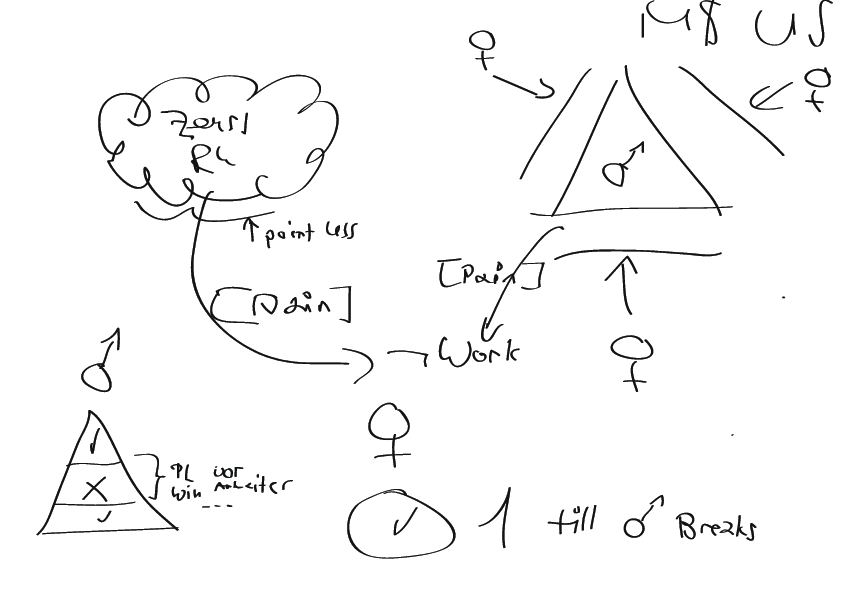 point less
[Pain]
[Pain]
Work
PL vor
win Arbeiter
---
1 till ♂ Breaks